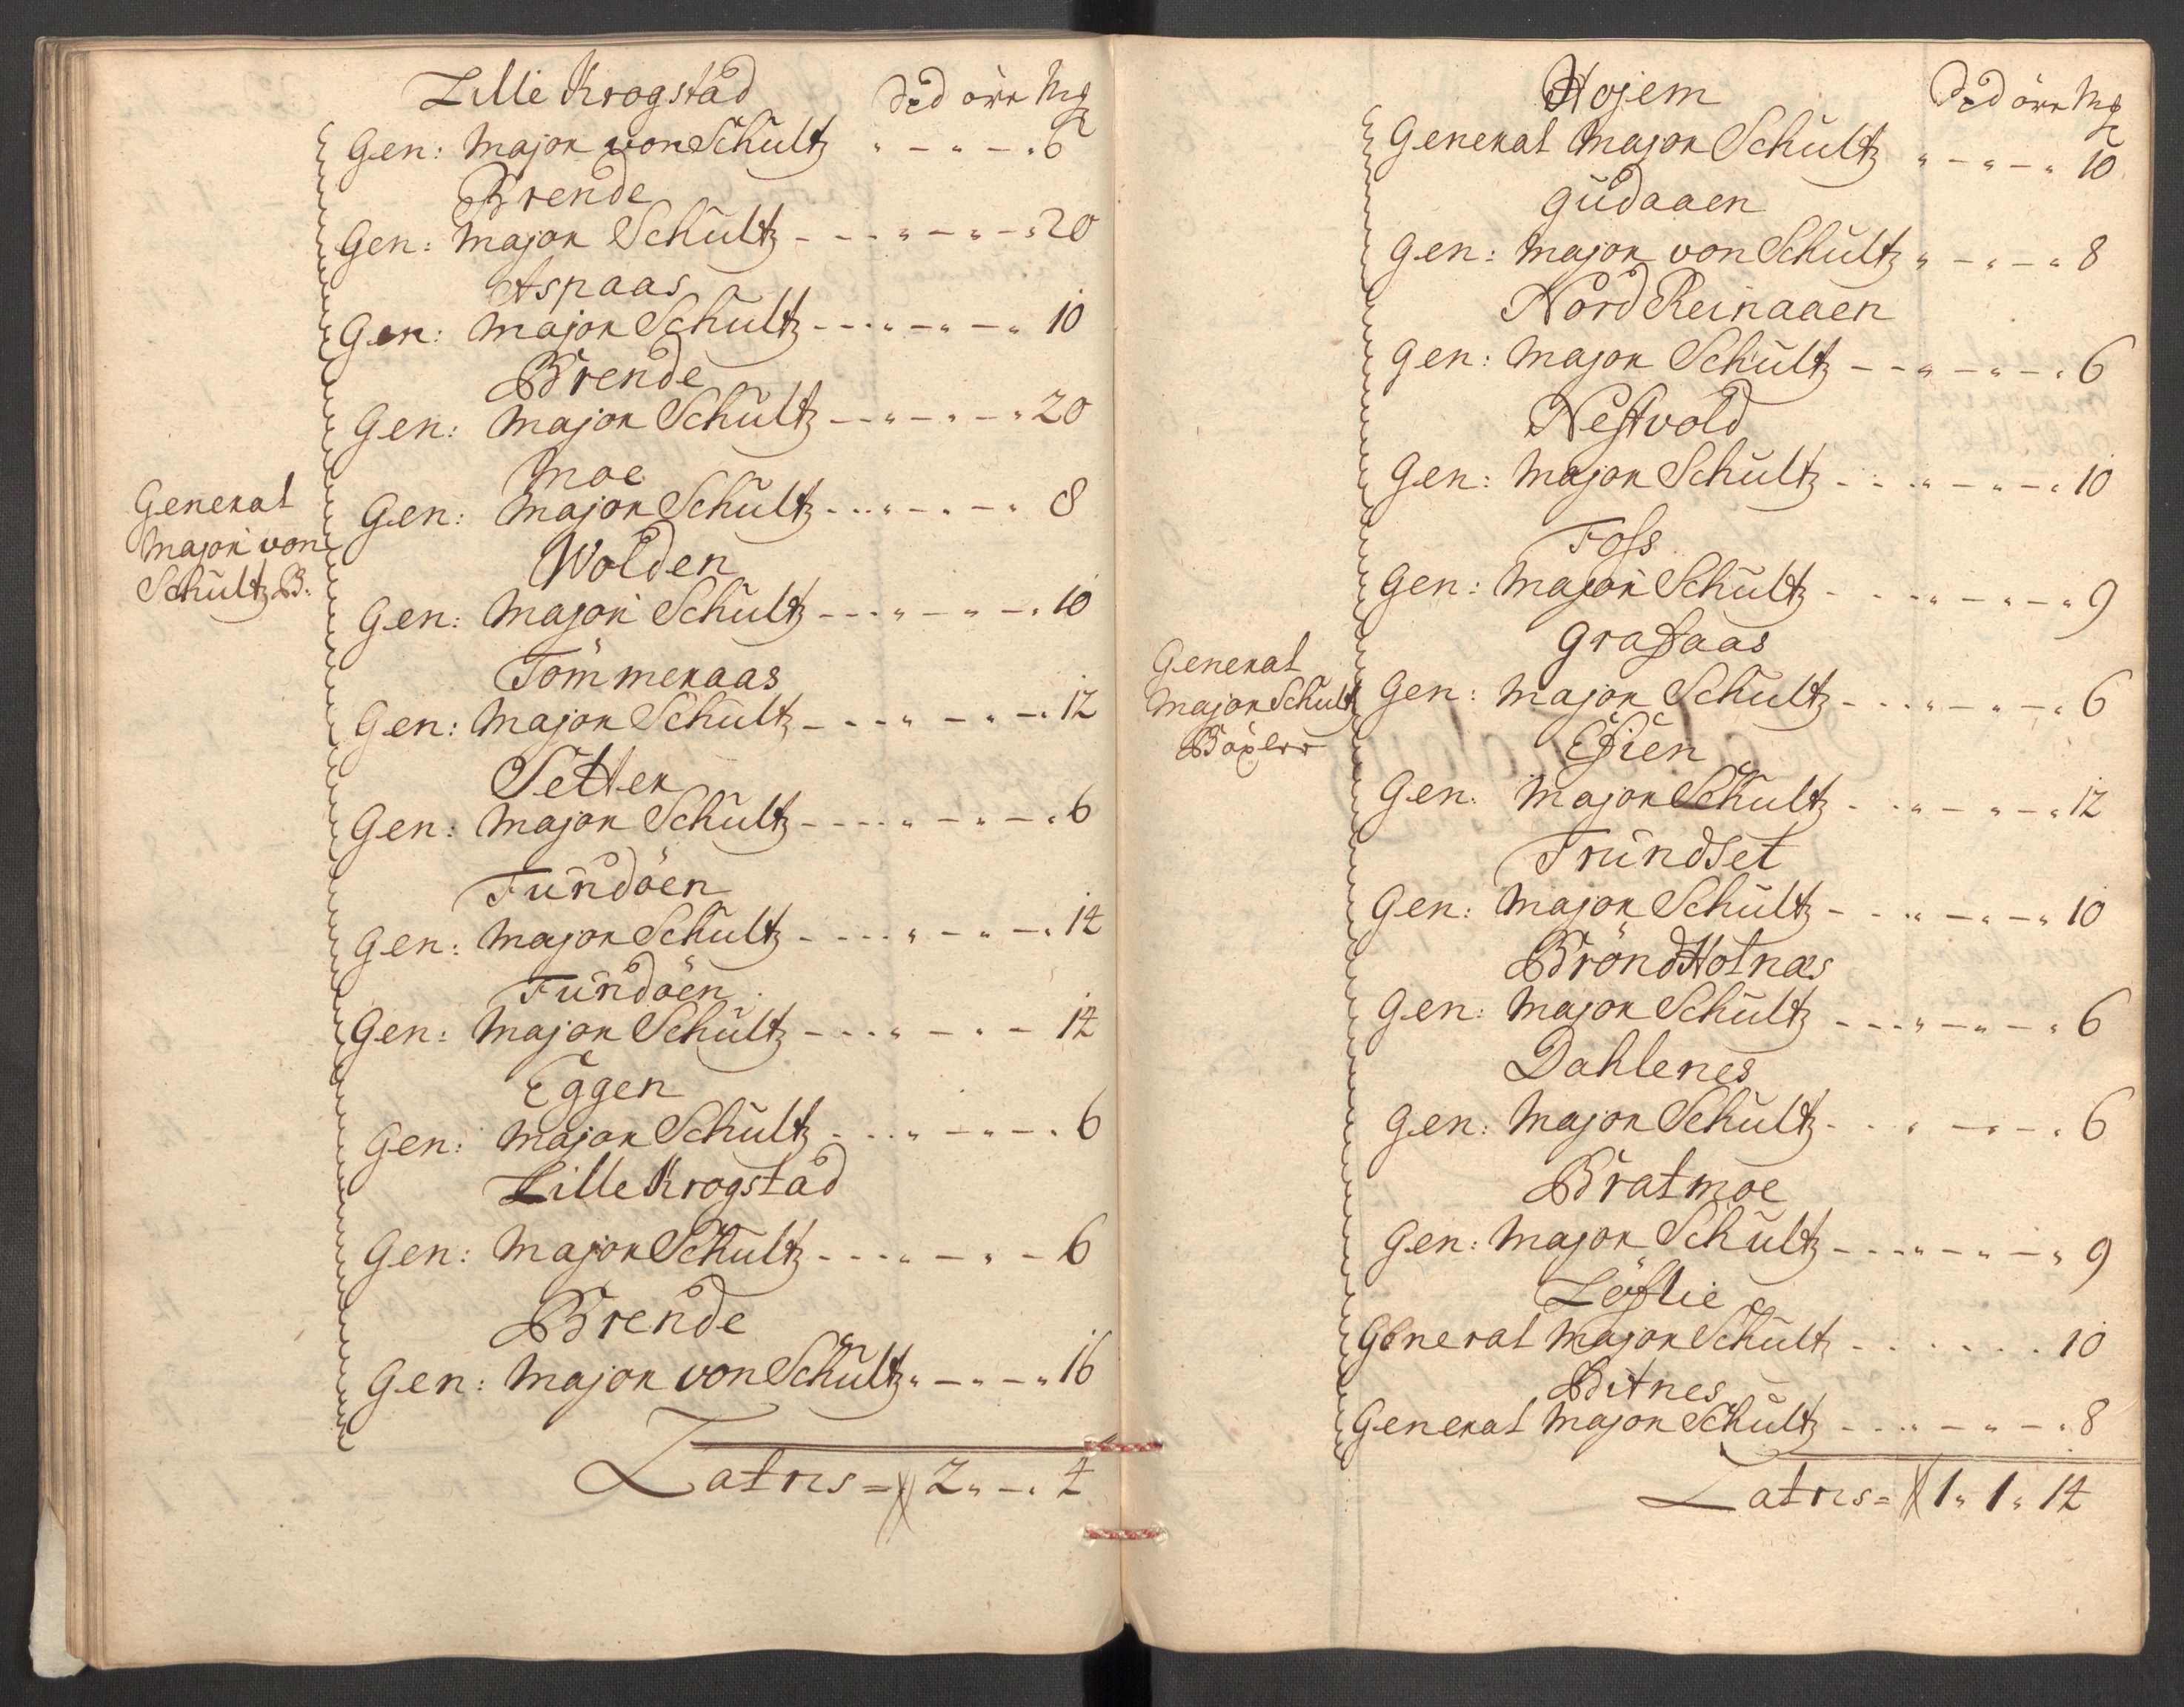 Lille Krogstad
Spd öre Mg
Gen: Major von Schultz " - " - " 6
Brende
Gen: Major Schultz - - - " - " - " 20
Aspaas
Gen: Major Schultz - - - " - " - " 10
Brende
Gen: Major Schultz - - " - " - " 20
Moe
Gen: Major Schultz - - - " - " - " 8
General
Major von
Schultz B:
Wolden
Gen: Major Schultz - - - " - " - " 10
Tömmeraas
Gen: Major Schultz - - - " - " - " 12
Setter
Gen: Major Schultz - - - - " - " - " 6
Fundöen
Gen: Major Schultz - - - - " - " - " 14
Fundöen
Gen: Major Schultz - - - " - " - 14
Eggen
Gen: Major Schultz - - - " - " - " 6
Lille Krogstad
Gen: Major Schultz - - - " - " - 6
Brende
Gen: Major von Schultz " - " - " 16
Latus = 2 " - " 4
Hojem
Spd öre Mg
General Major Schultz " - " - " 10
Gudaaen
Gen: Major von Schultz " - " - " 8
Nord Reinaaen
Gen: Major Schultz - - " - " - " 6
Nestvold
Gen: Major Schultz - - - " - " - " 10
Foss
Gen: Major Schultz - - - " - " - " 9
Grassaas
Gen: Major Schultz - - - " - " - " 6
General
Major Schult
Essien
Gen: Major Schultz - - " - " - " 12
Trundset
Gen: Major Schultz - - - " - " - " 10
Brönd Holnæs
Gen: Major Schultz - - - " - " - " 6
Dahlenes
Gen: Major Schultz - - - " - " - " 6
Bratmoe
Gen: Major Schultz - - - " - " - " 9
Löflie
General Major Schultz - - - - - - 10
Bitnes
General Major Schultz - - - " - " - " 8
Latus = 1 " 1 " 14